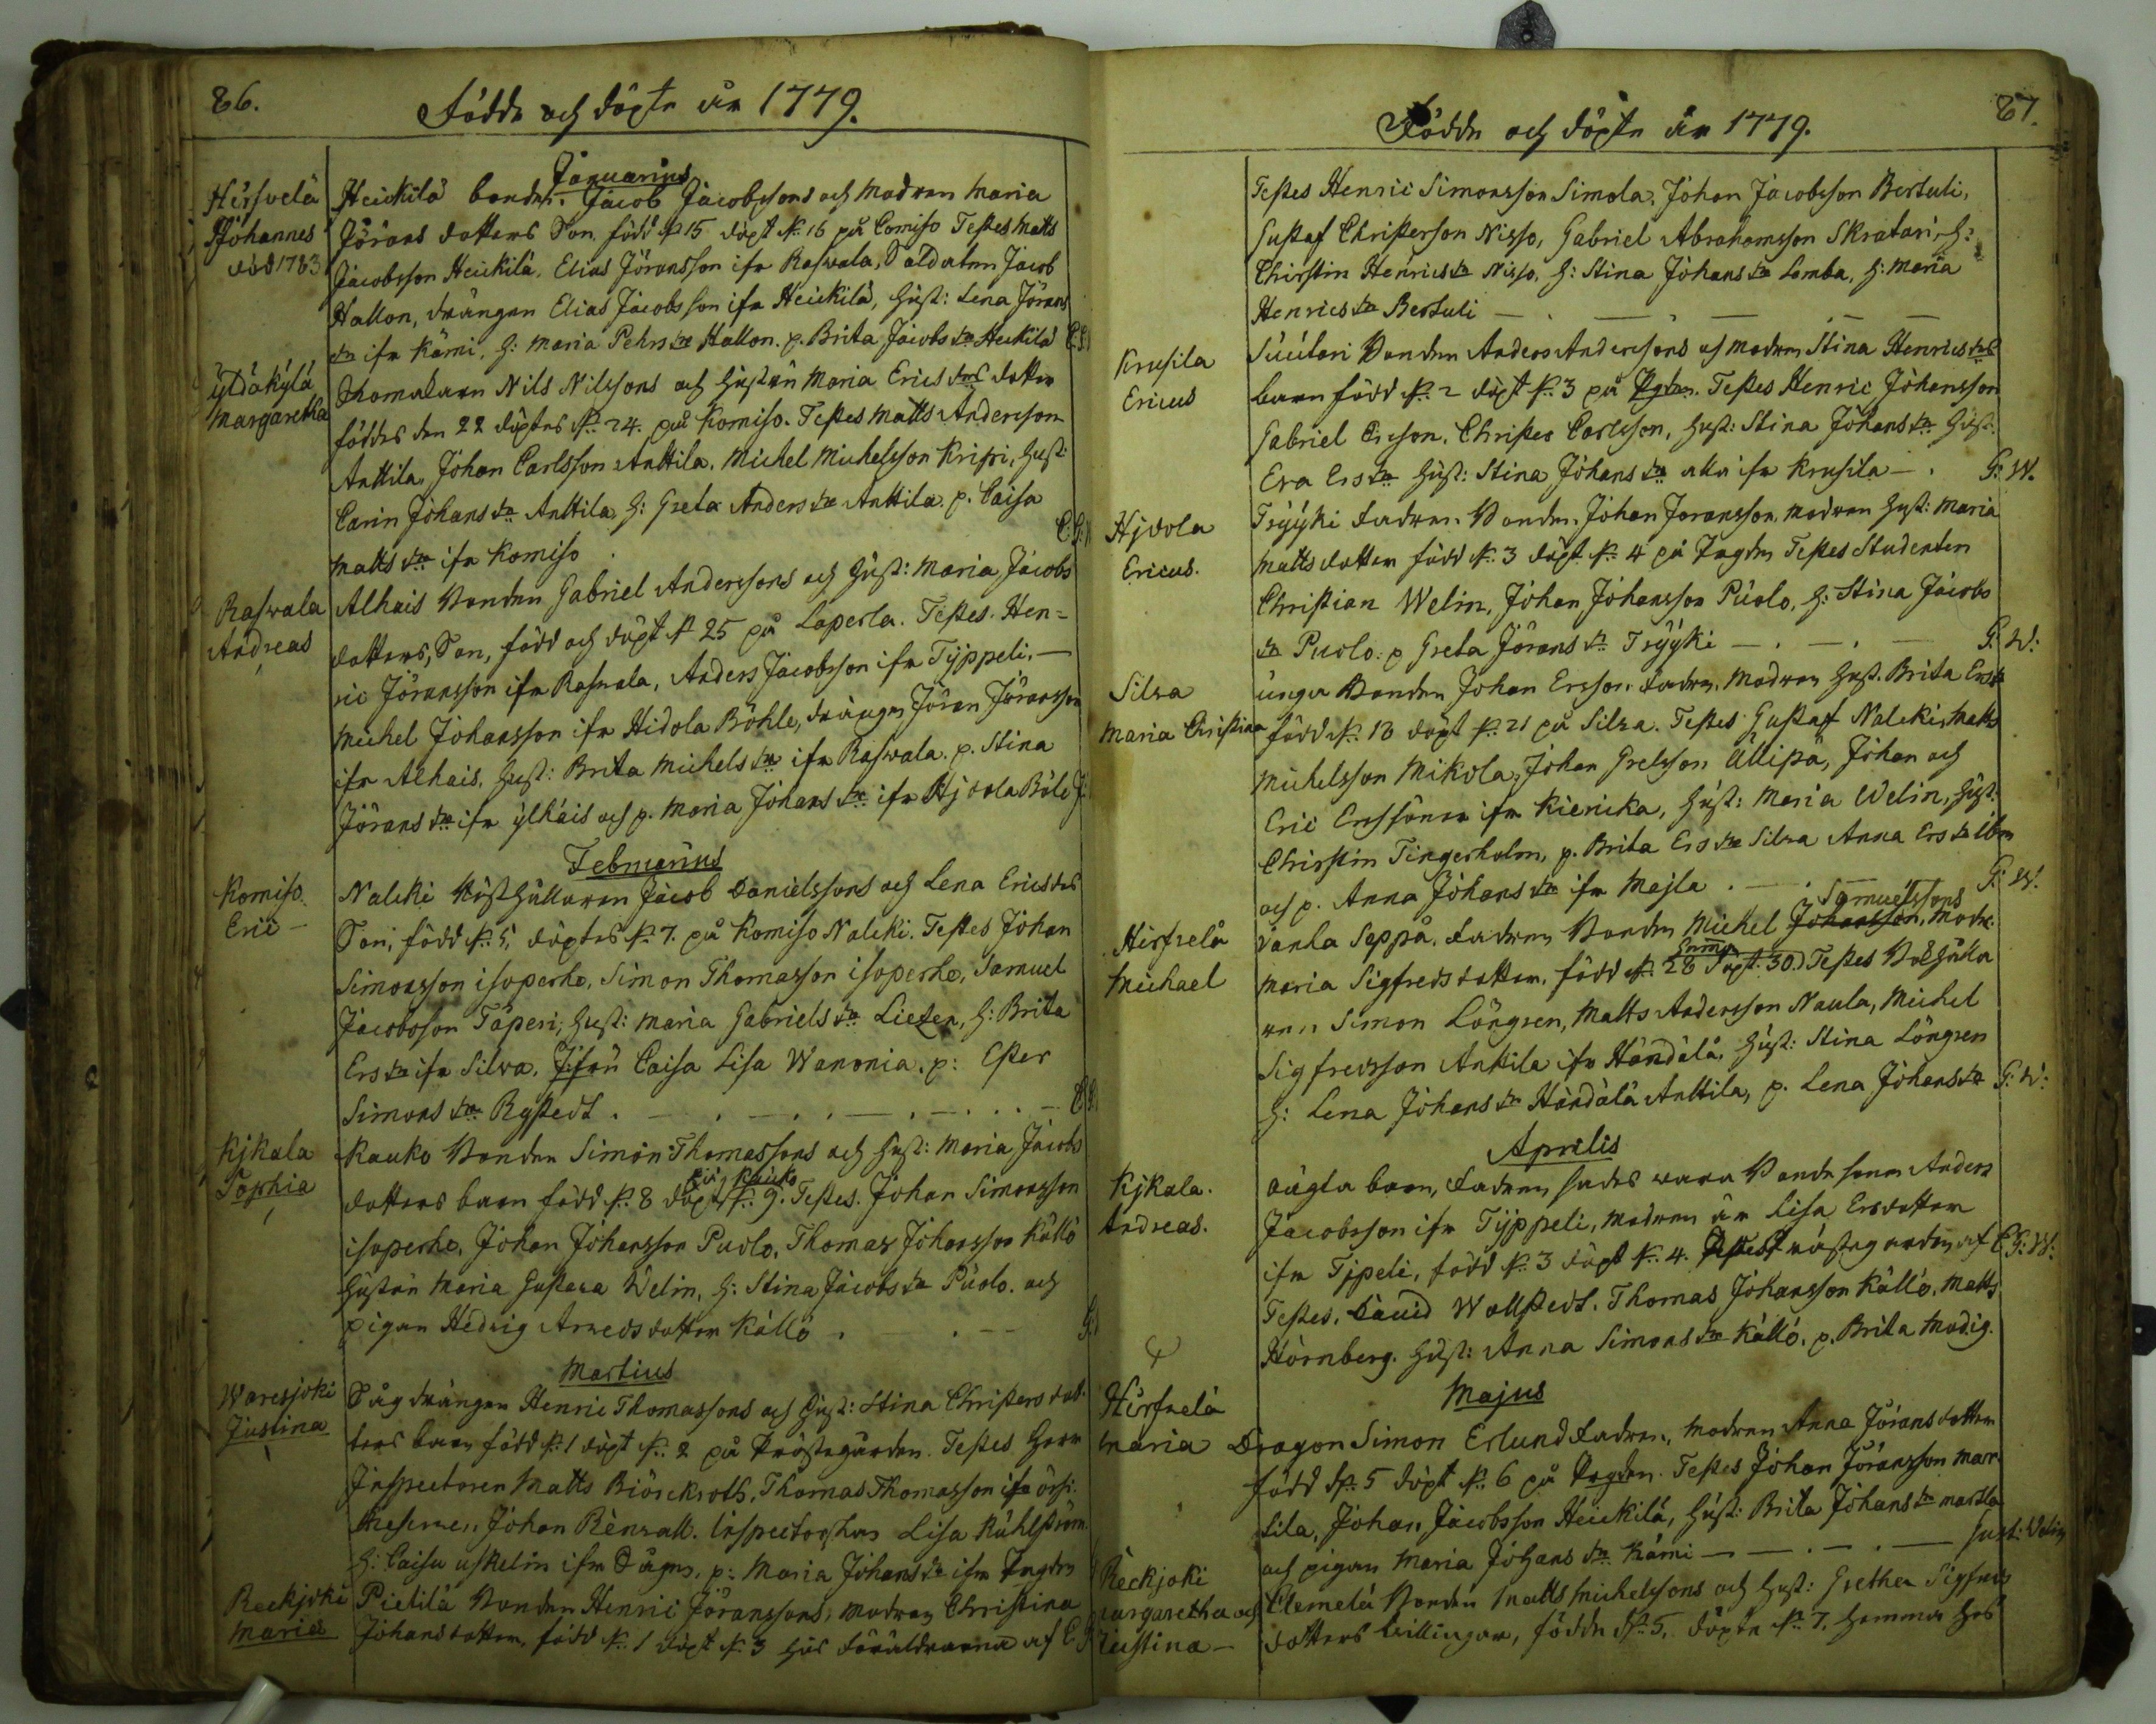 86.
Födde och döpte år 1779.
Januarius
Hirsvelä
Johannes
död 1783
Heickilä bonden Jacob Jacobssons och modren Maria
Jörans dotters Son född d. 15 döpt d. 16 på Comiso Testes Matts
Jacobsson Heickilä, Elias Jöransson ifr Raswala, Soldaten Jacob
Hallon, drängen Elias Jacobsson ifr Heickilä, Hust: Lena Jörans
dr ifr Kämi, h: Maria Pehrs dr Hallon. p. Brita Jacobs dr Heickilä
Yldäkylä
Margaretha
Thomalaren Nils Nilssons och Hustrun Maria Erics drs dotter
föddes den 22 döptes d. 24. på Komiso. Testes Matts Andersson
Anttila, Johan Carlsson Anttila, Michel Michelsson Kripi, Hust:
Carin Johans dr Anttila, h: Greta Anders dr Anttila. p. Caisa
Matts dr ifr Komiso
Raswala
Andreas
Alhais Bonden Gabriel Anderssons och Hust: Maria Jacobs
dotters, Son, född och döpt d. 25 på Laperla. Testes. Hen=
ric Jöransson ifr Raswala, Anders Jacobsson ifr Typpeli,
Michel Johansson ifr Hidola Böhle, drängen Jöran Jöransson
ifr Alhais, Hust: Brita Michels dr ifr Raswala. p. Stina
Jörans dr ifr Ylhäis och p. Maria Johans dr ifr Hjdola Böle
Februarius
Komiso
Eric
Naleki Rusthållaren Jacob Danielssons och Lena Ericsdrs
Son, född d. 5, döptes d. 7. på Komiso Naleki. Testes Johan
Simonsson isoperhe, Simon Thomasson isoperhe, Samuel
Jacobsson Täperi, Hust: Maria Gabriels dr Liezen, h: Brita
Ers dr ifr Silva. Jfru Caisa Lisa Wanonia. p: Ester
Simons dr Rystedt.
Kjkala
Sophia
Kauko Bonden Simon Thomassons och Hust: Maria Jacobs
dotters barn född d. 8 döpt på Kauko d. 9. Testes. Johan Simonsson
isoperhe, Johan Johansson Puolo, Thomas Johansson Källö
Hustrun Maria Gustava Welin, h: Stina Jacobs dr Puolo. och
pigan Hedvig Arvedsdotter Källö
Martius
Waresjoki
Justina
Sågdrängen Henric Thomassons och Hust: Stina Christers dot
ters barn född d. 1 döpt d. 2 på Prästegården. Testes Herr
Inspectoren Matts Biörckroth, Thomas Thomasson ifr
Johan Renvall. Inspectorskan Lisa Kühlström
h: Caisa Uskelin ifr Sågen, p: Maria Johans dr ifr Pngdn
Reckjoki
Maria
Pietilä Bonden Henric Jöranssons, modren Christina
Johansdotter, född d. 1 döpt d. 3 hos föräldrarna af
87.
Födde och döpte år 1779.
Testes Henric Simonsson Simola, Johan Jacobsson Bertuli,
Gustaf Christersson Nisso, Gabriel Abrahamsson Skratari, h:
Christin Henrics dr Nisso, h: Stina Johans dr Lomba, h: Maria
Henrics dr Bertuli
Krusila
Ericus
Suutari Bonden Anders Anderssons och modren Stina Henrics drs
barn född d. 2 döpt d. 3 på Pgdn. Testes Henric Johansson
Gabriel Ericson, Christer Carlsson, Hust: Stina Johans dr Hust:
Eva Ers dr Hust: Stina Johans dr alla ifr Krusila G: W.
Hjdola
Ericus.
Tryyki fadren Bonden Johan Joransson, modren Hust: Maria
Mattsdotter född d. 3 döpt d. 4 på Pngdn Testes Studenten
Christian Welin, Johan Johansson Puolo, h: Stina Jacobs
dr Puolo. p Greta Jörans dr Tryyki G: W:
Silva
Maria Christina
unga Bonden Johan Ersson fadren, Modren Hust. Brita Ersdr
född d. 18 döpt d. 21 på Silva. Testes Gustaf Naleki, Matts
Michelsson Mikola, Johan Grelsson Ällipä, Johan och
Eric Erssöner ifr Kiericka, Hust: Maria Welin, Hust:
Christin Tingerholm, p. Brita Ers dr Silva Anna Ers dr ibm
och p. Anna Johans dr ifr Majla G: W.
Hirfvelä
Michael
Vanha Seppä, fadren Bonden Michel Johansson Samuelssons, modr.
Maria Sigfredsdotter, född d. 28 döpt 30. Testes
Simon Löngren, Matts Andersson Naula, Michel
Sigfredsson Anttila ifr Händälä, Hust: Stina Löngren
h: Lena Johans dr Händälä Anttila, p. Lena Johans dr G: W:
Aprilis
Kjkala.
Andreas.
oägta barn, fadren sades vara Bonde sonen Anders
Jacobsson ifr Typpeli, modren är Lisa Ersdotter
ifr Tjpeli, född d. 3 döpt d. 4. Prästegården af C G: W:
Testes. David Wallstedt. Thomas Johansson Källö, Matts
Hörnberg. Hust: Anna Simons dr Källö, p. Brita Modig.
Majus
Hirfvelä
Maria
Dragon Simon Erlund fadren, modren Anna Jöransdotter
född d. 5 döpt d. 6 på Pngdn. Testes Johan Jöransson Mart
tila, Johan Jacobsson Heickilä, Hust: Brita Johans dr Martla
och pigan Maria Johans dr Kämi Gust: Welin
Reckjoki
Margaretha och
Justina
Clemelä Bonden Matts Michelssons och Hust: Grethe Sigfreds
dotters tvillingar, födde d. 5, döpte d. 7, hemma hos